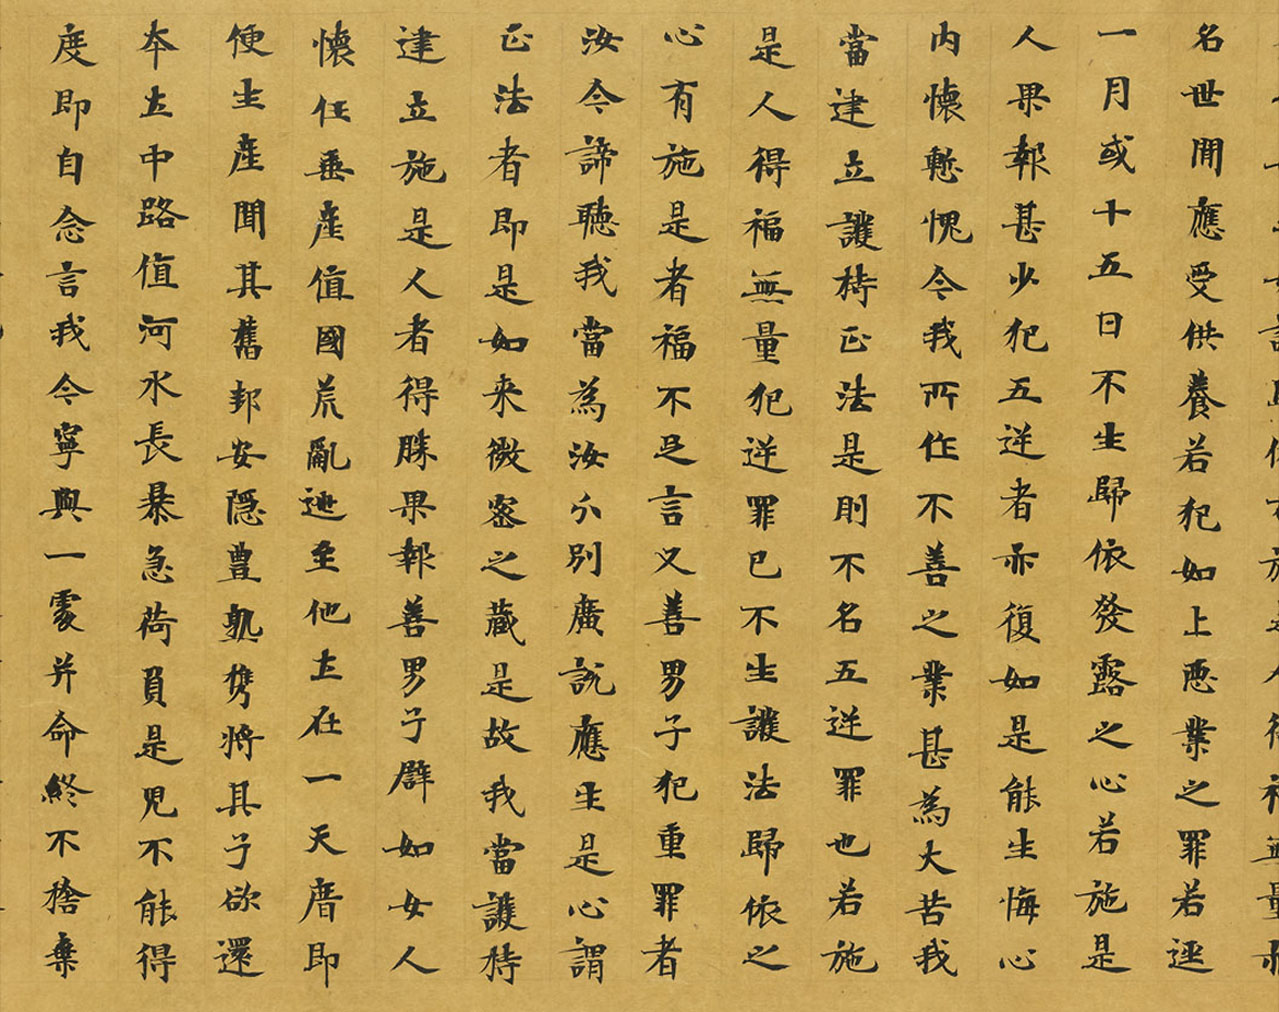 名世間應受供養若犯如上惡業之罪若逕
一月或十五日不生歸依發露之心若施是
人果報甚少犯五逆者亦復如是能生悔心
内懷慙愧今我所作不善之業甚為大苦我
當建立護持正法是則不名五逆罪也若施
是人得福無量犯逆罪已不生護法歸依之
心有施是者福不足言又善男子犯重罪者
汝今諦聽我當為汝分別廣說應生是心謂
正法者即是如来微密之藏是故我當護持
建立施是人者得勝果報善男子譬如女人
懷任垂產值國荒亂逃至他土在一天廟即
便生產聞其舊邦安隱豐熟携將其子欲還
本土中路值河水長暴急荷負是兒不能得
度即自念言我今寧與一處并命終不捨棄